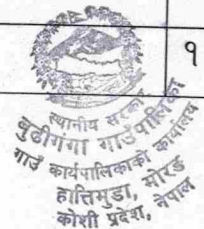 १
स्थानीय सरकार
बुढीगंगा गाउँपालिका
गाउँ कार्यपालिकाको कार्यालय
हात्तिमुडा, मोरङ
कोशी प्रदेश, नेपाल